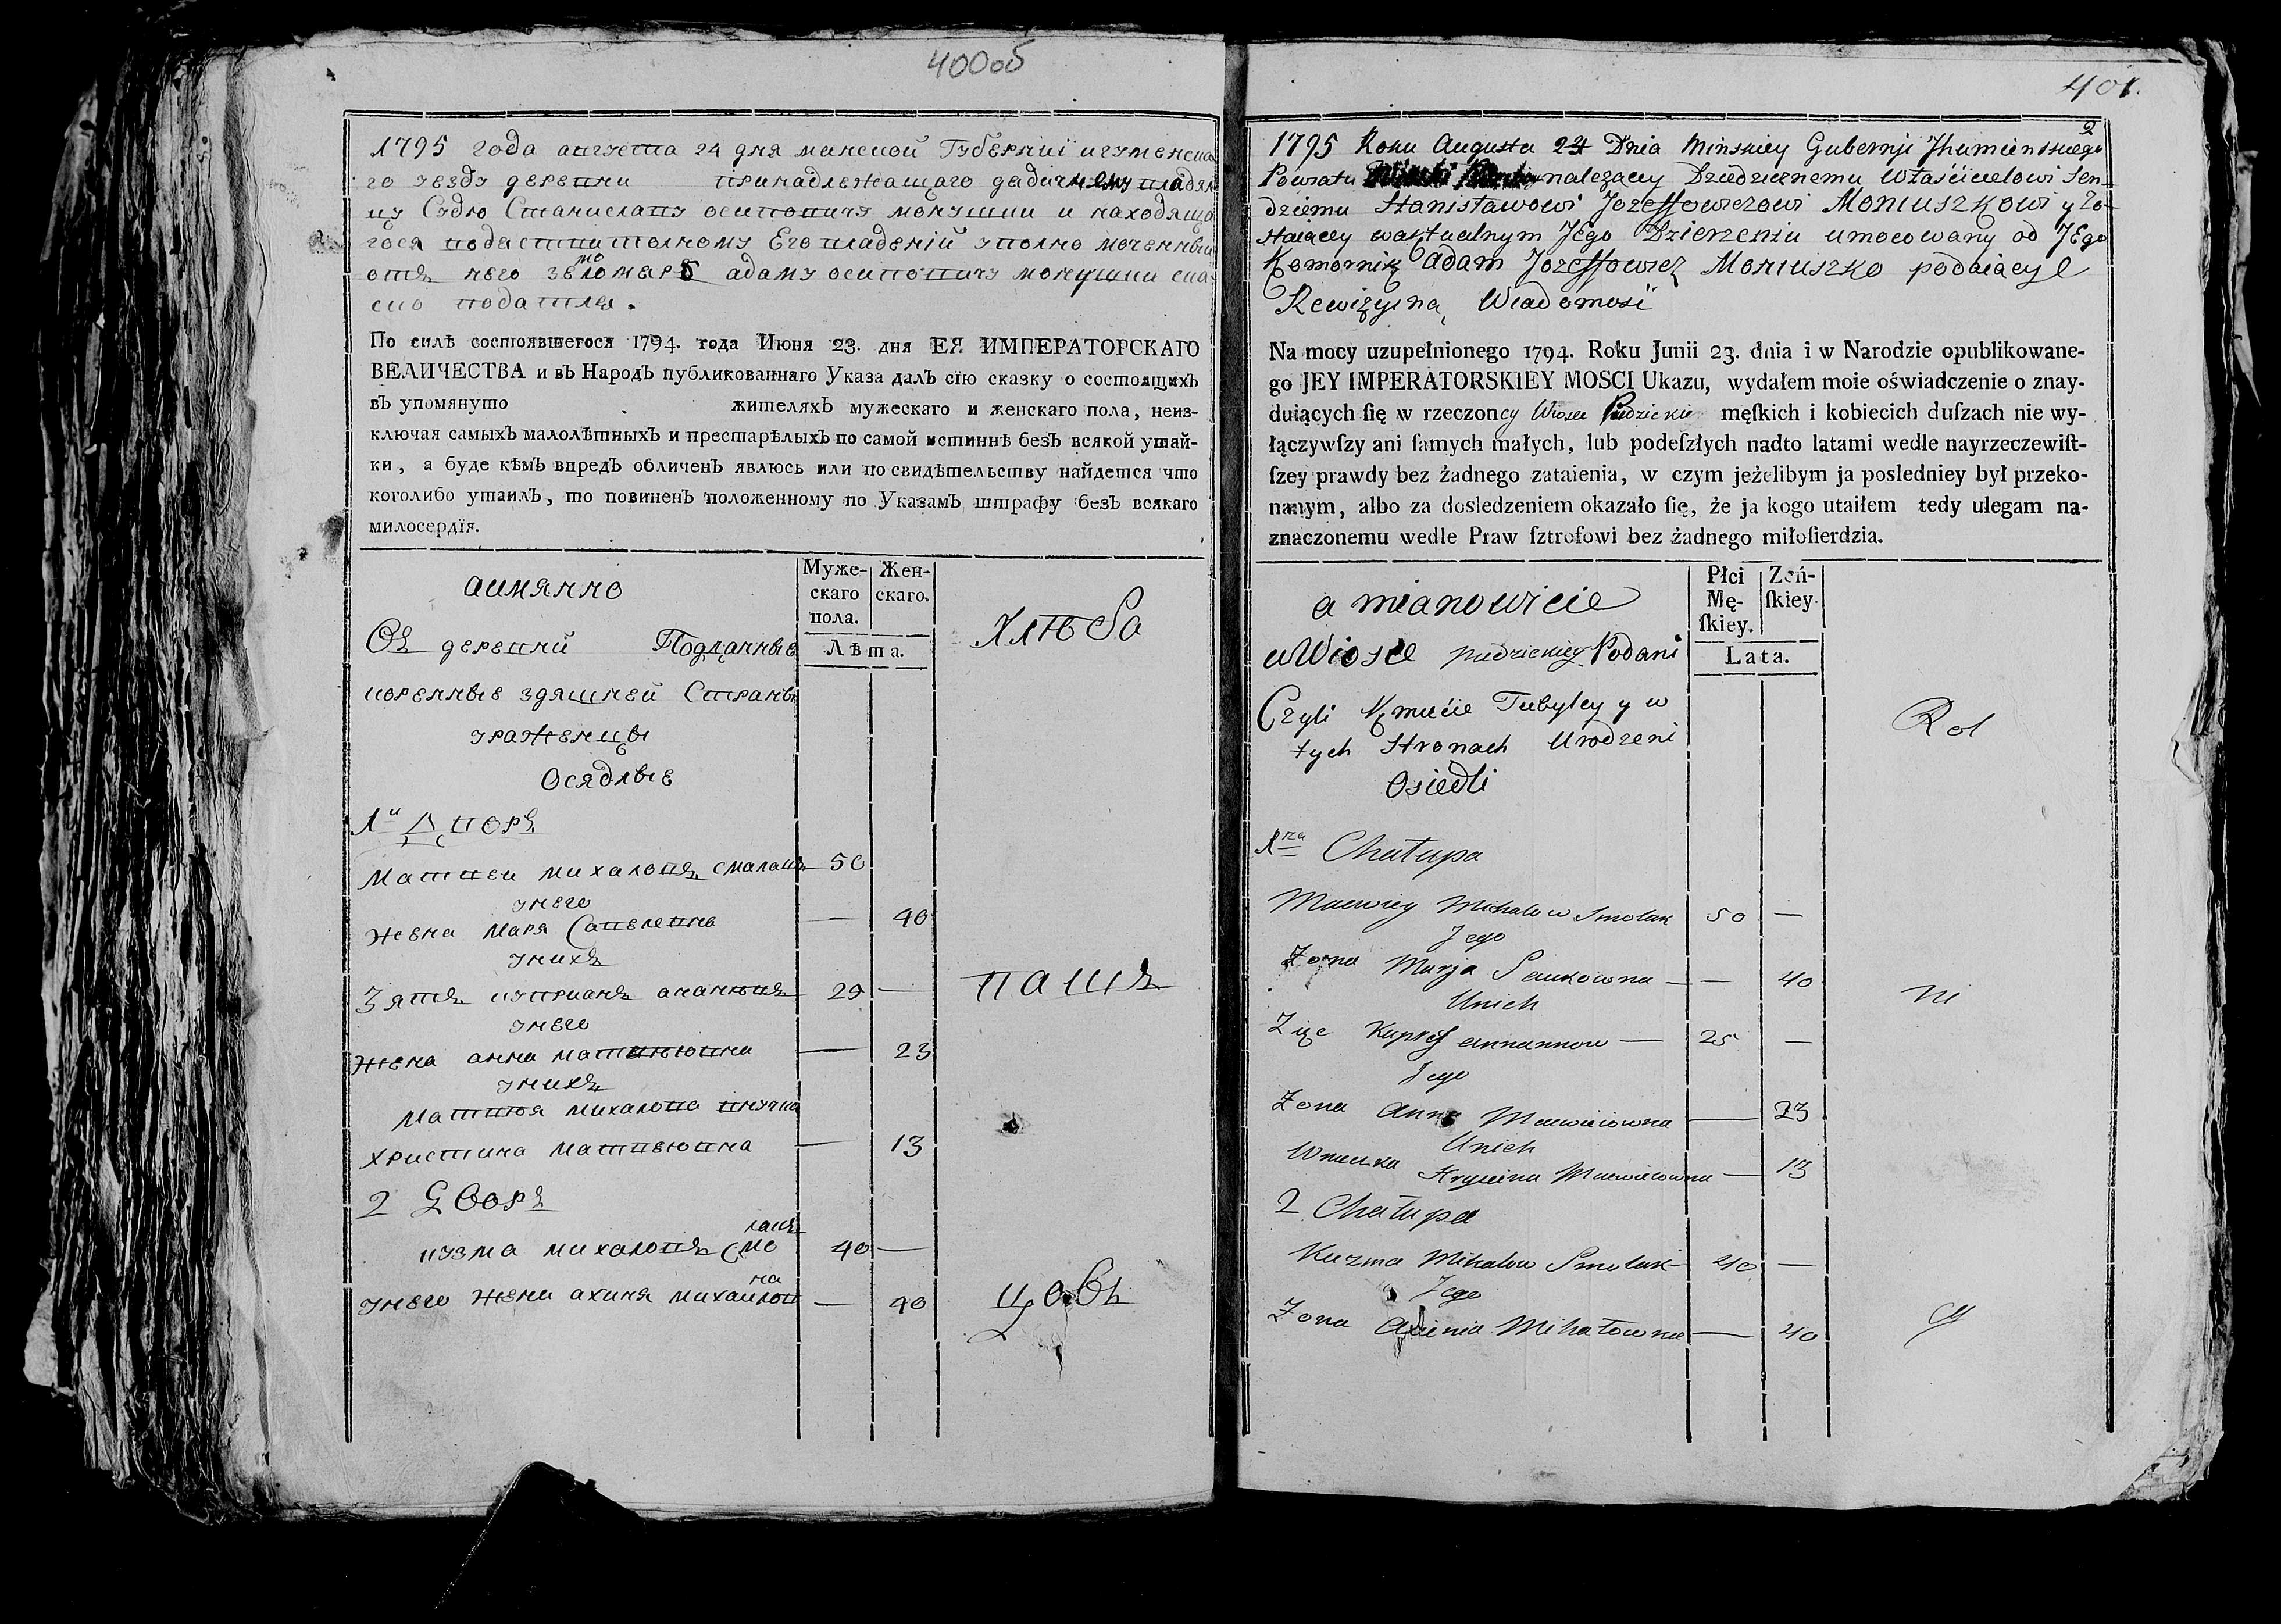 400об
1795 года августа 24 дня минской Губернїи игуменска
го уезду деревни принадлежащаго дедичному владел
цу Судю Станиславу осиповичу монушки и находяща
гося подвладенїй Его уполно моченный
отъ него адаму осиповичу монушки ска
ско податля.
По силѣ состоявшегося 1794. года Июня 23. дня ЕЯ ИМПЕРАТОРСКАГО
ВЕЛИЧЕСТВА и въ Народъ публикованнаго Указа далъ сїю сказку о состоящихъ
въ упомянуто жителяхъ мужескаго и женскаго пола, неиз-
ключая самыхъ малолѣтныхъ и престарѣлыхъ по самой истиннѣ безъ всякой утай-
ки, а буде кѣмъ впредъ обличенъ явлюсь или по свидѣтельству найдется что
коголибо утаилъ, то повиненъ положенному по Указамъ штрафу безъ всякаго
милосердїя.
аимянно
Муже-
скаго
пола.
Жен-
скаго.
Лѣта.
Хлѣба
Въ деревнй Подданные
коренные здяшней Страны
ураженцы
Осядлые
1й Дворъ
Матвеи михаловъ смалакъ 50
унего
жена Маря Савелевна — 40
унихъ
Зятъ куприанъ ананьевъ 25 —
пашъ
унего
жена анна матвеювна — 23
унихъ
Матвоя михалова внучка
христина матвеювна — 13
2 Дворъ
лакъ
кузма михаловъ Смо 40 —
на
унего жена ахиня михаилов — 40
цовъ
401.
2
1795 Roku Augusta 24 Dnia Minskiey Gubernji Jhumienskiego
Powiatu nalezącey Dziedzicznemu Właścicielowi Sen-
dziemu Stanisławowi Jozeffowiczowi Moniuszkowi y zo-
staiącey waktualnym Jego Dzierzeniu umocowany od JEgo
Komornik Adam Jozeffowicz Moniuszko podaiący
Rewizyiną Wiadomosć
Na mocy uzupełnionego 1794. Roku Junii 23. dnia i w Narodzie opublikowane-
go JEY IMPERATORSKIEY MOSCI Ukazu, wydałem moie oświadczenie o znay-
duiących ſię w rzeczoney Wiosce Pudzickiey męſkich i kobiecich duſzach nie wy-
łączywſzy ani ſamych małych, lub podeſzłych nadto latami wedle nayrzeczewiſt-
ſzey prawdy bez żadnego zataienia, w czym jeżelibym ja posledniey był przeko-
nanym, albo za dosledzeniem okazało ſię, że ja kogo utaiłem tedy ulegam na-
znaczonemu wedle Praw ſztrofowi bez żadnego miłoſierdzia.
a mianowicie
Płci
Mę-
ſkiey.
Zeń-
ſkiey.
Lata.
wWiosce Pudzickiey Podani
Czyli Kmiecie Tubylcy y w
tych Stronach Urodzeni
Rol
Osiedli
1sza Chałupa
Maewiey Michalow Smolak 50 —
Jego
Zona Marja Saukowna — 40
Unich
ni
Zięc Annannow — 25 —
Jego
Zona Anna Maewieiowna — 23
Unich
Wnuczka Krysina Maewieiowna — 13
2 Chałupa
Kuzma Mihalow Smolak 40 —
Jego
Zona Axienia Mihałowna — 40
cy